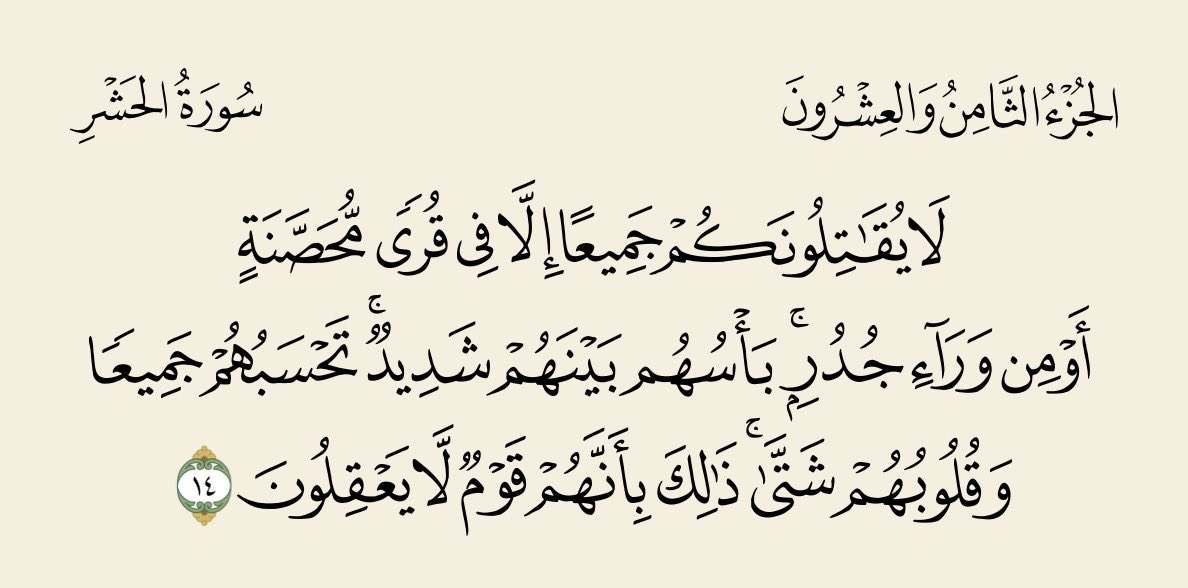 الجُزْءُ الثَّامِنُ وَالعِشْرُونَ
سُورَةُ الحَشْرِ
لَا يُقَـٰتِلُونَكُمْ جَمِيعًا إِلَّا فِى قُرًى مُّحَصَّنَةٍ
أَوْ مِن وَرَآءِ جُدُرِۭ ۚ بَأْسُهُم بَيْنَهُمْ شَدِيدٌ ۚ تَحْسَبُهُمْ جَمِيعًا
وَقُلُوبُهُمْ شَتَّىٰ ۚ ذَٰلِكَ بِأَنَّهُمْ قَوْمٌ لَّا يَعْقِلُونَ ١٤